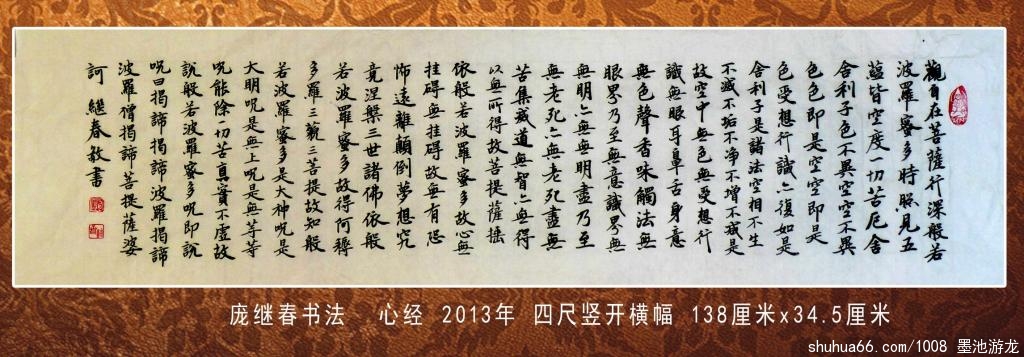 觀自在菩薩行深般若
波羅蜜多時照見五
蘊皆空度一切苦厄舍
舍利子色不異空空不異
色色即是空空即是
色受想行識亦復如是
舍利子是諸法空相不生
不滅不垢不净不增不減是
故空中無色無受想行
識無眼耳鼻舌身意
無色聲香味觸法無
眼界乃至無意識界無
無明亦無無明盡乃至
無老死亦無老死盡無
苦集滅道無智亦無得
以無所得故菩提薩埵
依般若波羅蜜多故心無
挂碍無挂碍故無有恐
怖遠離顛倒夢想究
竟涅槃三世諸佛依般
若波羅蜜多故得阿耨
多羅三藐三菩提故知般
若波羅蜜多是大神呪是
大明呪是無上呪是無等等
呪能除一切苦真實不虛故
說般若波羅蜜多呪即說
呪曰揭諦揭諦波羅揭諦
波羅僧揭諦菩提薩婆
訶 繼春敬書
庞继春书法 心经 2013年 四尺竖开横幅 138厘米x34.5厘米
shuhua66.com/1008 墨池游龙